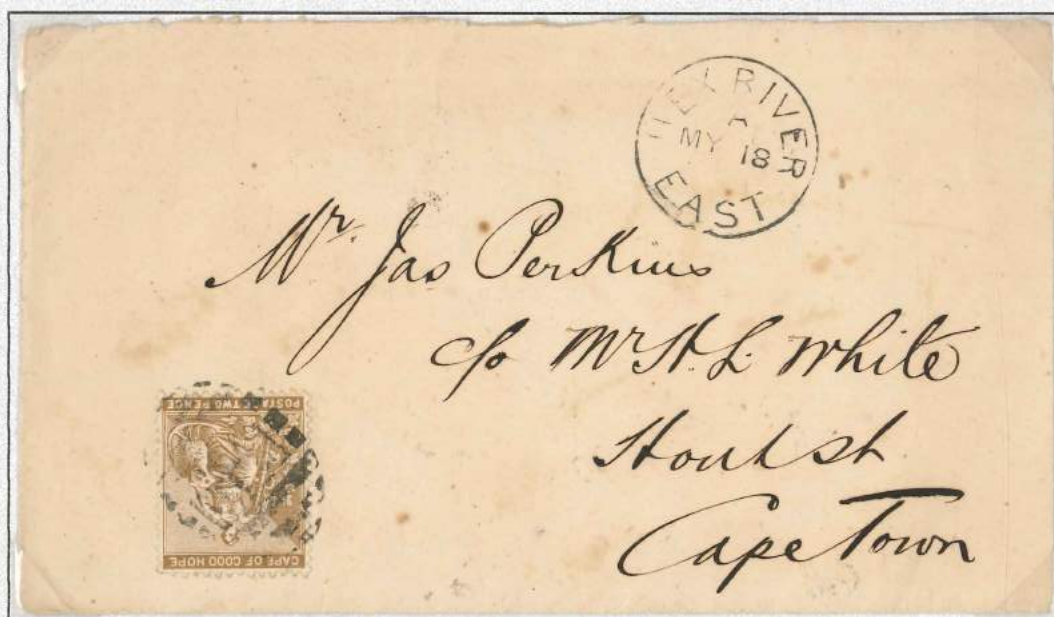 HEX RIVER
MY 18
EAST
Mr. Jas Perkins
c/o Mr H. L. White
Hout st
Cape Town
POSTAGE TWO PENCE
CAPE OF GOOD HOPE